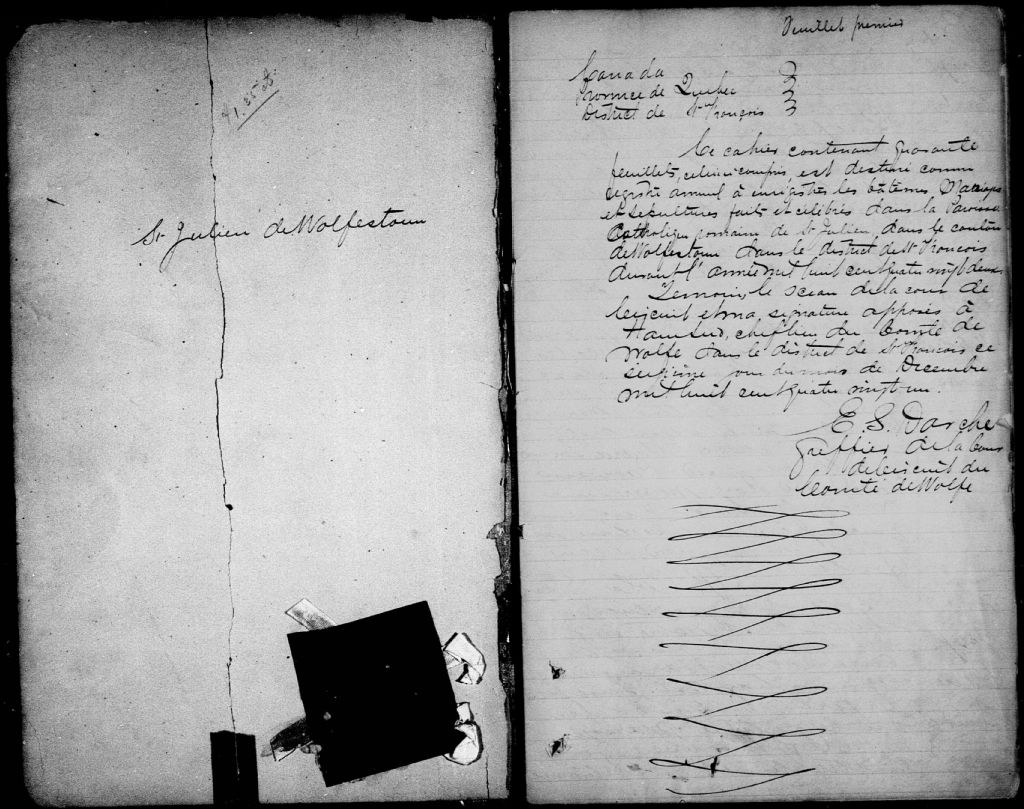 $1.25 ct
St Julien de Wolfestown
Feuillet premier
Canada
Province de Quebec
District de St François
Ce cahier contenant quarante
feuillets, celui ci compris, est destiné comme
registre annuel à enrigistrer les bâtêmes Mariages
et Sépultures faits et célébrés dans la Paroisse
Catholique romaine de St Julien dans le canton
de Wolfestown dans le district de St François
durant l'année mil huit cent quatre vingt deux
Temoin, le sceau de la cour de
circuit et ma signature apposés à
Ham Sud, chef lieu du Comté de
Wolfe dans le district de St François ce
jour du mois de Decembre
mil huit cent quatre vingt un.
E. S. Darche
Greffier de la Cour
de Circuit du
Comté de Wolfe